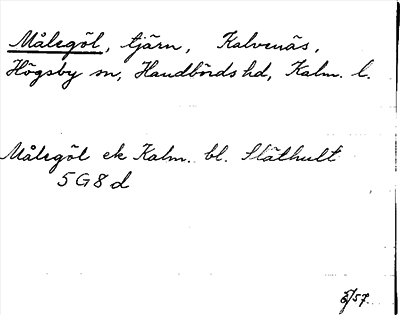 Målegöl, tjärn, Kalvenäs,
Högsby sn, Handbörds hd, Kalm. l.
Målegöl ek Kalm. bl. Släthult
5 G 8 d
/57.